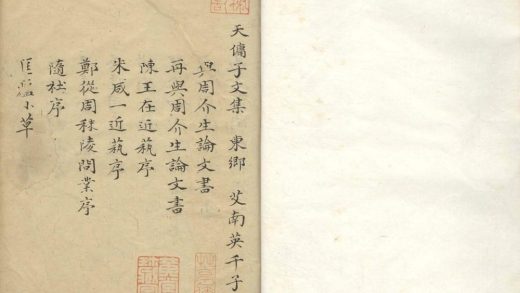 天傭子文集 東鄉 艾南英千子
與周介生論文書
再與周介生論文書
陳王在近藁序
米咸一近藁序
鄭從周秣陵問業序
隨社序
小草